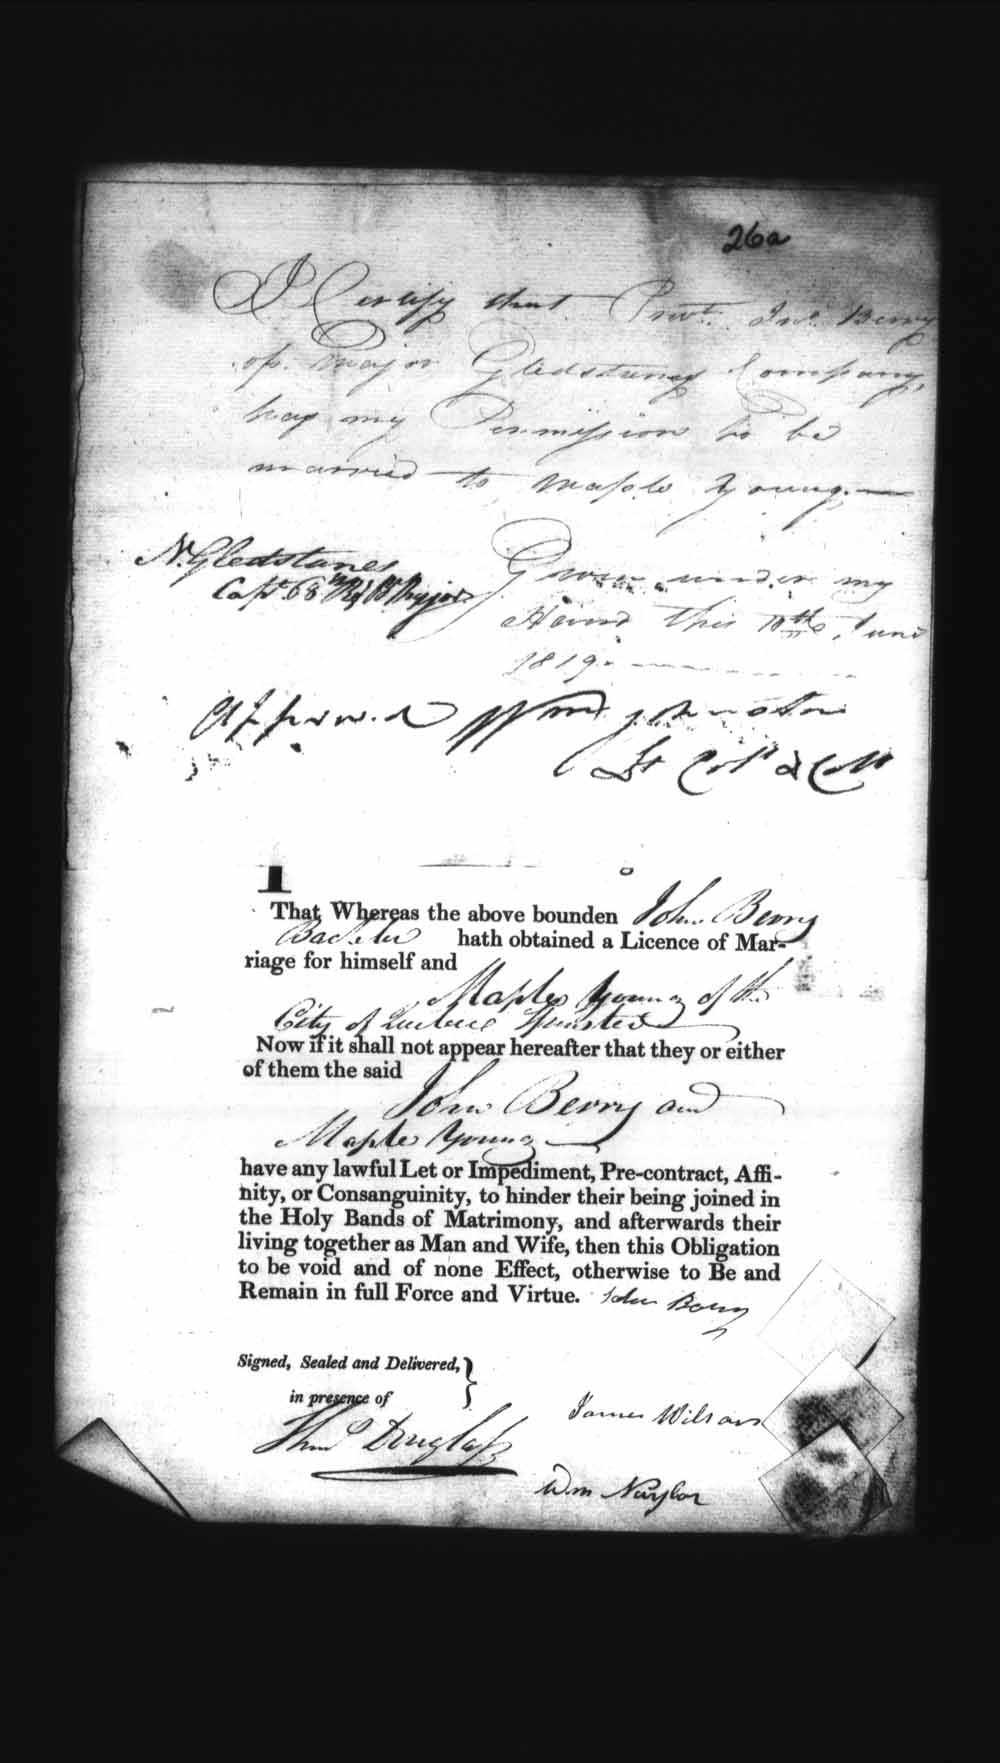 26a
I Certify that Privt. Jno. Berry
of Major Gledstanes Company,
has my Permission to be
married to Maple Young.
N. Gledstanes
Capt. 68th Rgt Bt Major
Given under my
Hand this 10th June
1819.
Approved Wm Johnston
Lt Coll & Coll
That Whereas the above bounden John Berry
Bachelor hath obtained a Licence of Mar-
riage for himself and
Maple Young of the
City of Quebec Spinster
Now if it shall not appear hereafter that they or either
of them the said
John Berry and
Maple Young
have any lawful Let or Impediment, Pre-contract, Affi-
nity, or Consanguinity, to hinder their being joined in
the Holy Bands of Matrimony, and afterwards their
living together as Man and Wife, then this Obligation
to be void and of none Effect, otherwise to Be and
Remain in full Force and Virtue. John Berry
Signed, Sealed and Delivered, }
in presence of
James Wilson
Thos Douglass
Wm Naylor